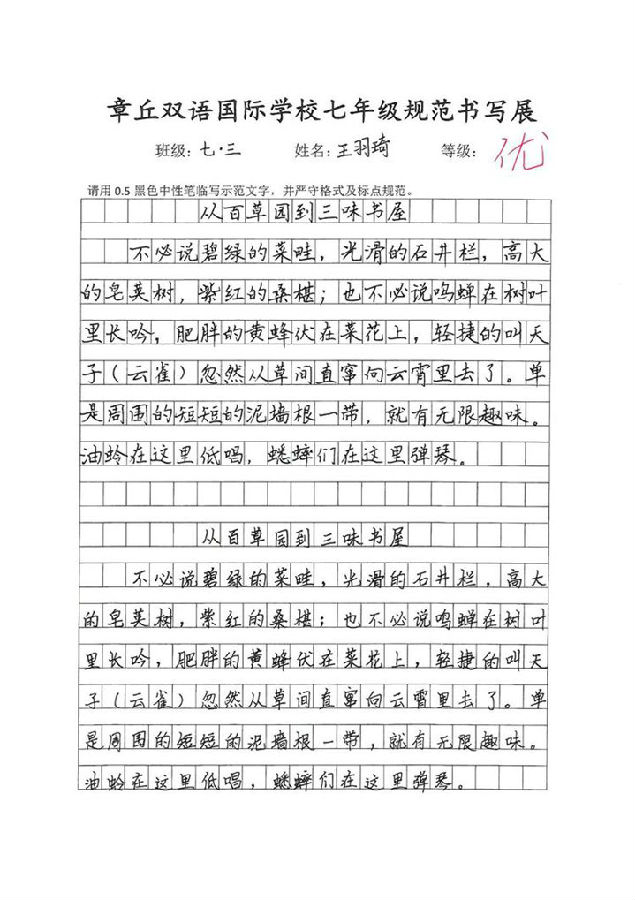 章丘双语国际学校七年级规范书写展
班级：七·三 姓名：王羽琦 等级：优
请用 0.5 黑色中性笔临写示范文字，并严守格式及标点规范。
从百草园到三味书屋
不必说碧绿的菜畦，光滑的石井栏，高大
的皂荚树，紫红的桑椹；也不必说鸣蝉在树叶
里长吟，肥胖的黄蜂伏在菜花上，轻捷的叫天
子（云雀）忽然从草间直窜向云霄里去了。单
是周围的短短的泥墙根一带，就有无限趣味。
油蛉在这里低唱，蟋蟀们在这里弹琴。
从百草园到三味书屋
不必说碧绿的菜畦，光滑的石井栏，高大
的皂荚树，紫红的桑椹；也不必说鸣蝉在树叶
里长吟，肥胖的黄蜂伏在菜花上，轻捷的叫天
子（云雀）忽然从草间直窜向云霄里去了。单
是周围的短短的泥墙根一带，就有无限趣味。
油蛉在这里低唱，蟋蟀们在这里弹琴。